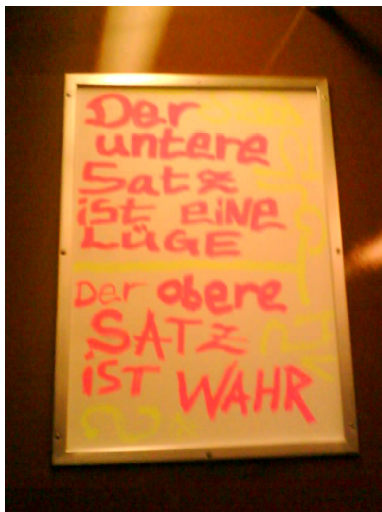 Der
untere
Satz
ist eiNE
LÜGE
Der obere
SATZ
iST WAHR